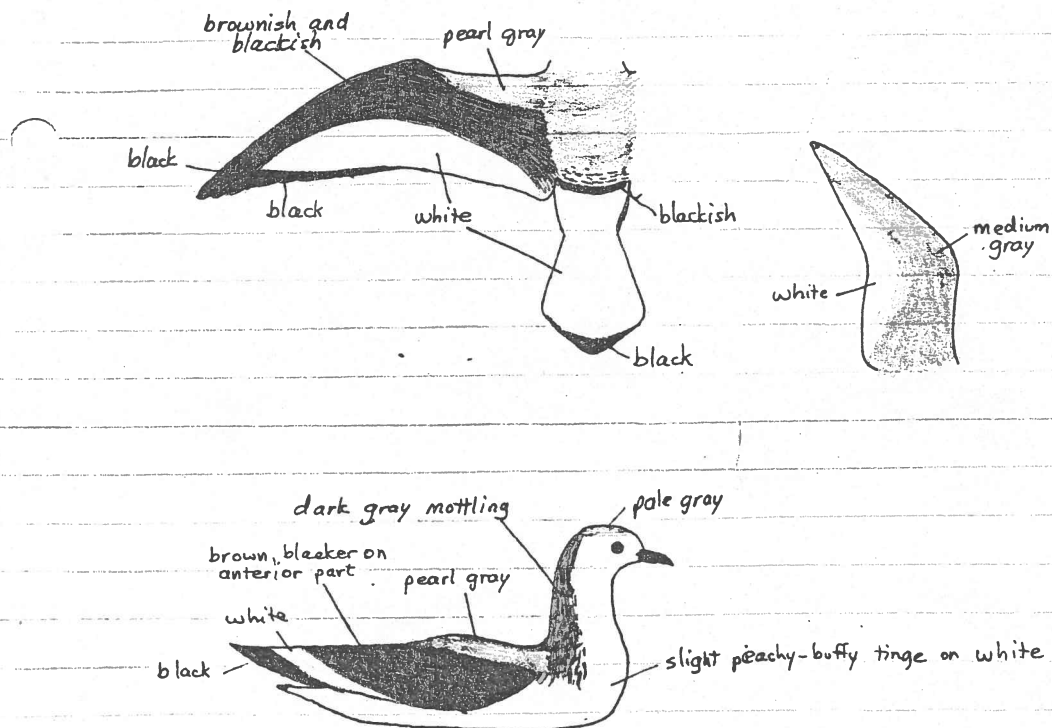 brownish and
blackish
pearl gray
black
black
white
blackish
medium
gray
white
black
dark gray mottling
pale gray
brown, blacker on
anterior part
pearl gray
white
black
slight peachy-buffy tinge on white